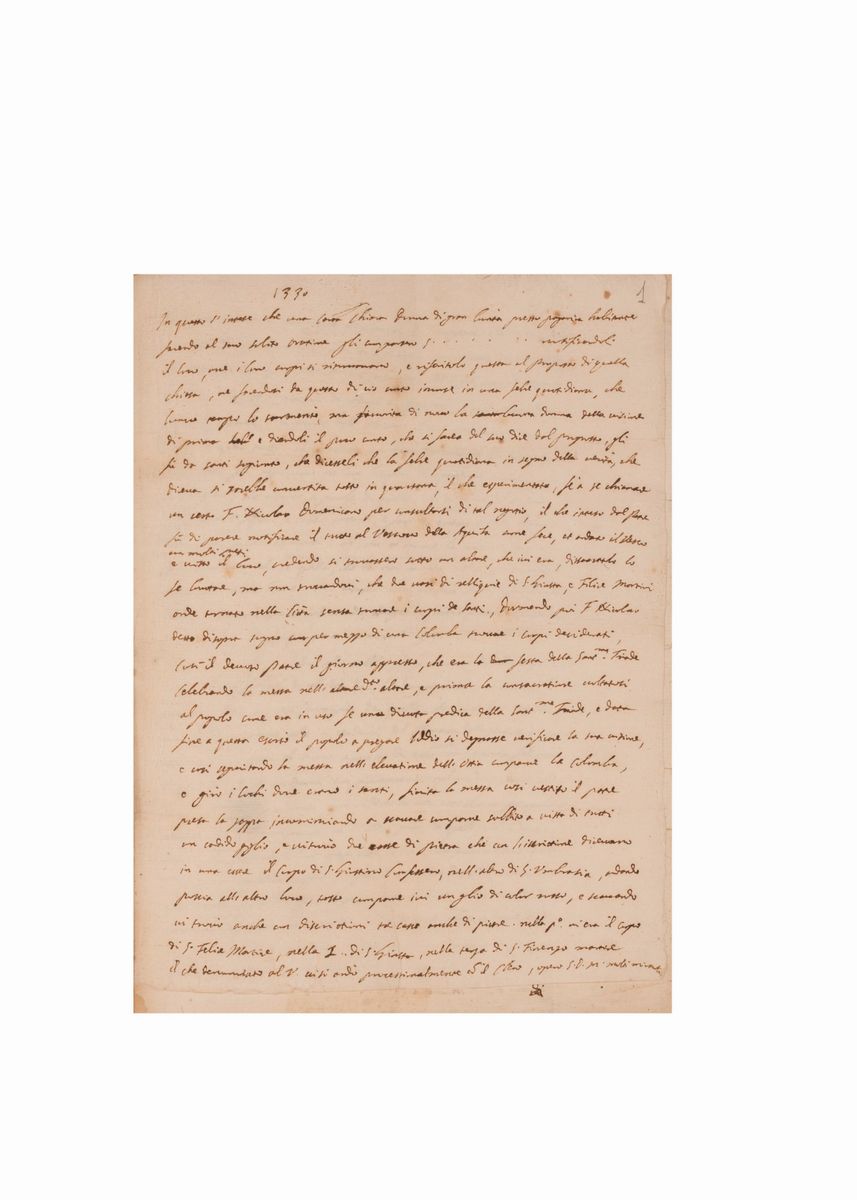 1330
1
In questo s'intese che una Chiara donna di gran bontà presso habitante
facendo al suo solito oratione gli comparse S. . . . . . . notificandoli
il loco, ove i loro corpi si ritrovavano, e riferitolo questa al preposto di quella
chiesa, ne facendosi da questo di ciò conto incorse in una febre quotidiana, che
lungo tempo lo tormentò, ma favorita di nuovo la donna della visione
di prima e dicendoli il poco conto, che si facea del suo dire dal preposto, gli
fù da santi soggiunto, che dicesseli che la febre quotidiana in segno della verità, che
diceva si sarebbe convertita tosto in quartana, il che esperimentato, fè a se chiamare
un certo F. Nicolao Domenicano per consultarsi di tal negotio, il che inteso dal Padre
fù di parere notificare il tutto al Vescovo della Aquila come fece, et andato il Vescovo
con molti altri
e visto il loco, credendo si trovassero sotto un altare, che ivi era, disfattolo lo
fè levare, ma non trovandovi, che due vasi di relliquie di S. Giusta, e Felice Martiri
onde tornato nella Città senza trovare i corpi de santi, dormendo poi F. Nicolao
detto di sopra sognò con per mezzo di una Colomba trovare i corpi desiderati,
Così il devoto Padre il giorno appresso, che era la festa della Sant.ma Triade
celebrando la messa nell' d.to altare, e prima la consacratione voltatosi
al popolo come era in uso fe una divota predica della Sant.ma Triade, e data
fine a questa esortò il popolo a pregare Iddio si degnasse verificare la sua visione,
e così seguitando la messa nell' elevatione dell' Ostia comparve la Colomba,
e girò i lochi dove erano i santi, finita la messa così vestito il Padre
presa la zappa incominciando a scavare comparve subbito a vista di tutti
un candido giglio, e vi trovò due casse di pietra che con l'iscrittione dicevano
in una esser il Corpo di S. Giustino Confessore, nell' altro di S. , andando
poscia all' altro loco, tosto comparve ivi un giglio di color rosso, e scavando
vi trovò anche con discrittioni tre casse anche di pietre. nella p.a vi era il Corpo
di S. Felice Martire, nella 2. . di S. Giusta, nella terza di S. Fiorenzo martire
il che denuntiato al V. vi si andò processionalmente con il Clero, operò